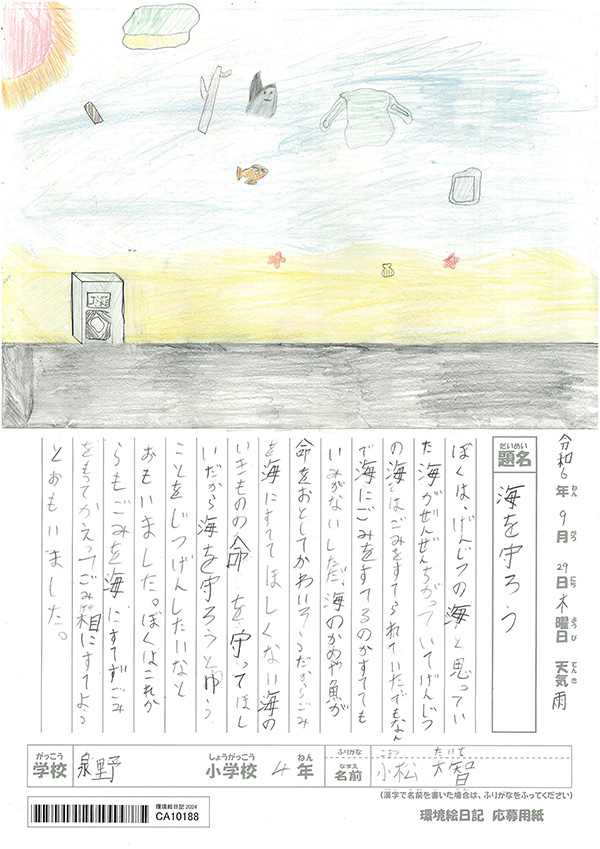 ゴミ箱
令和6年 9月 29日 木曜日 天気 雨
ねん がつ にち ようび てんき
だいめい
題名 海を守ろう
ぼくは、げんじつの海と思ってい
た海がぜんぜんちがっていてげんじつ
の海はごみをすてられていたでもなん
で海にごみをすてるのかすてても
いみがないしただ、海のかめや魚が
命をおとしてかわいそうだからごみ
を海にすててほしくない海の
いきものの命を守ってほし
いだから海を守ろうとゆう
ことをじつげんしたいなと
おもいました。ぼくはこれか
らもごみを海にすてずごみ
をもってかえってごみ箱にすてよう
とおもいました。
がっこう しょうがっこう ねん
学校 泉野 小学校 4年
ふりがな こまつ たいち
なまえ
名前 小松 大智
(漢字で名前を書いた場合は、ふりがなをふってください)
環境絵日記 2024
CA10188
環境絵日記 応募用紙